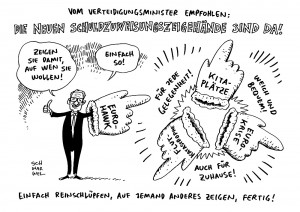 VOM VERTEIDIGUNGSMINISTER EMPFOHLEN:
DIE NEUEN SCHULDZUWEISUNGSZEIGEHÄNDE SIND DA!
ZEIGEN
SIE DAMIT,
AUF WEN SIE
WOLLEN!
EINFACH
SO!
EURO-
HAWK
FÜR JEDE
GELEGENHEIT!
KITA-
PLÄTZE
WEICH UND
BEQUEM!
EURO-
KRISE
FLUT-
KATASTROPHE
AUCH FÜR
ZUHAUSE!
SCH
WAR
WEL
EINFACH REINSCHLÜPFEN, AUF JEMAND ANDERES ZEIGEN, FERTIG!